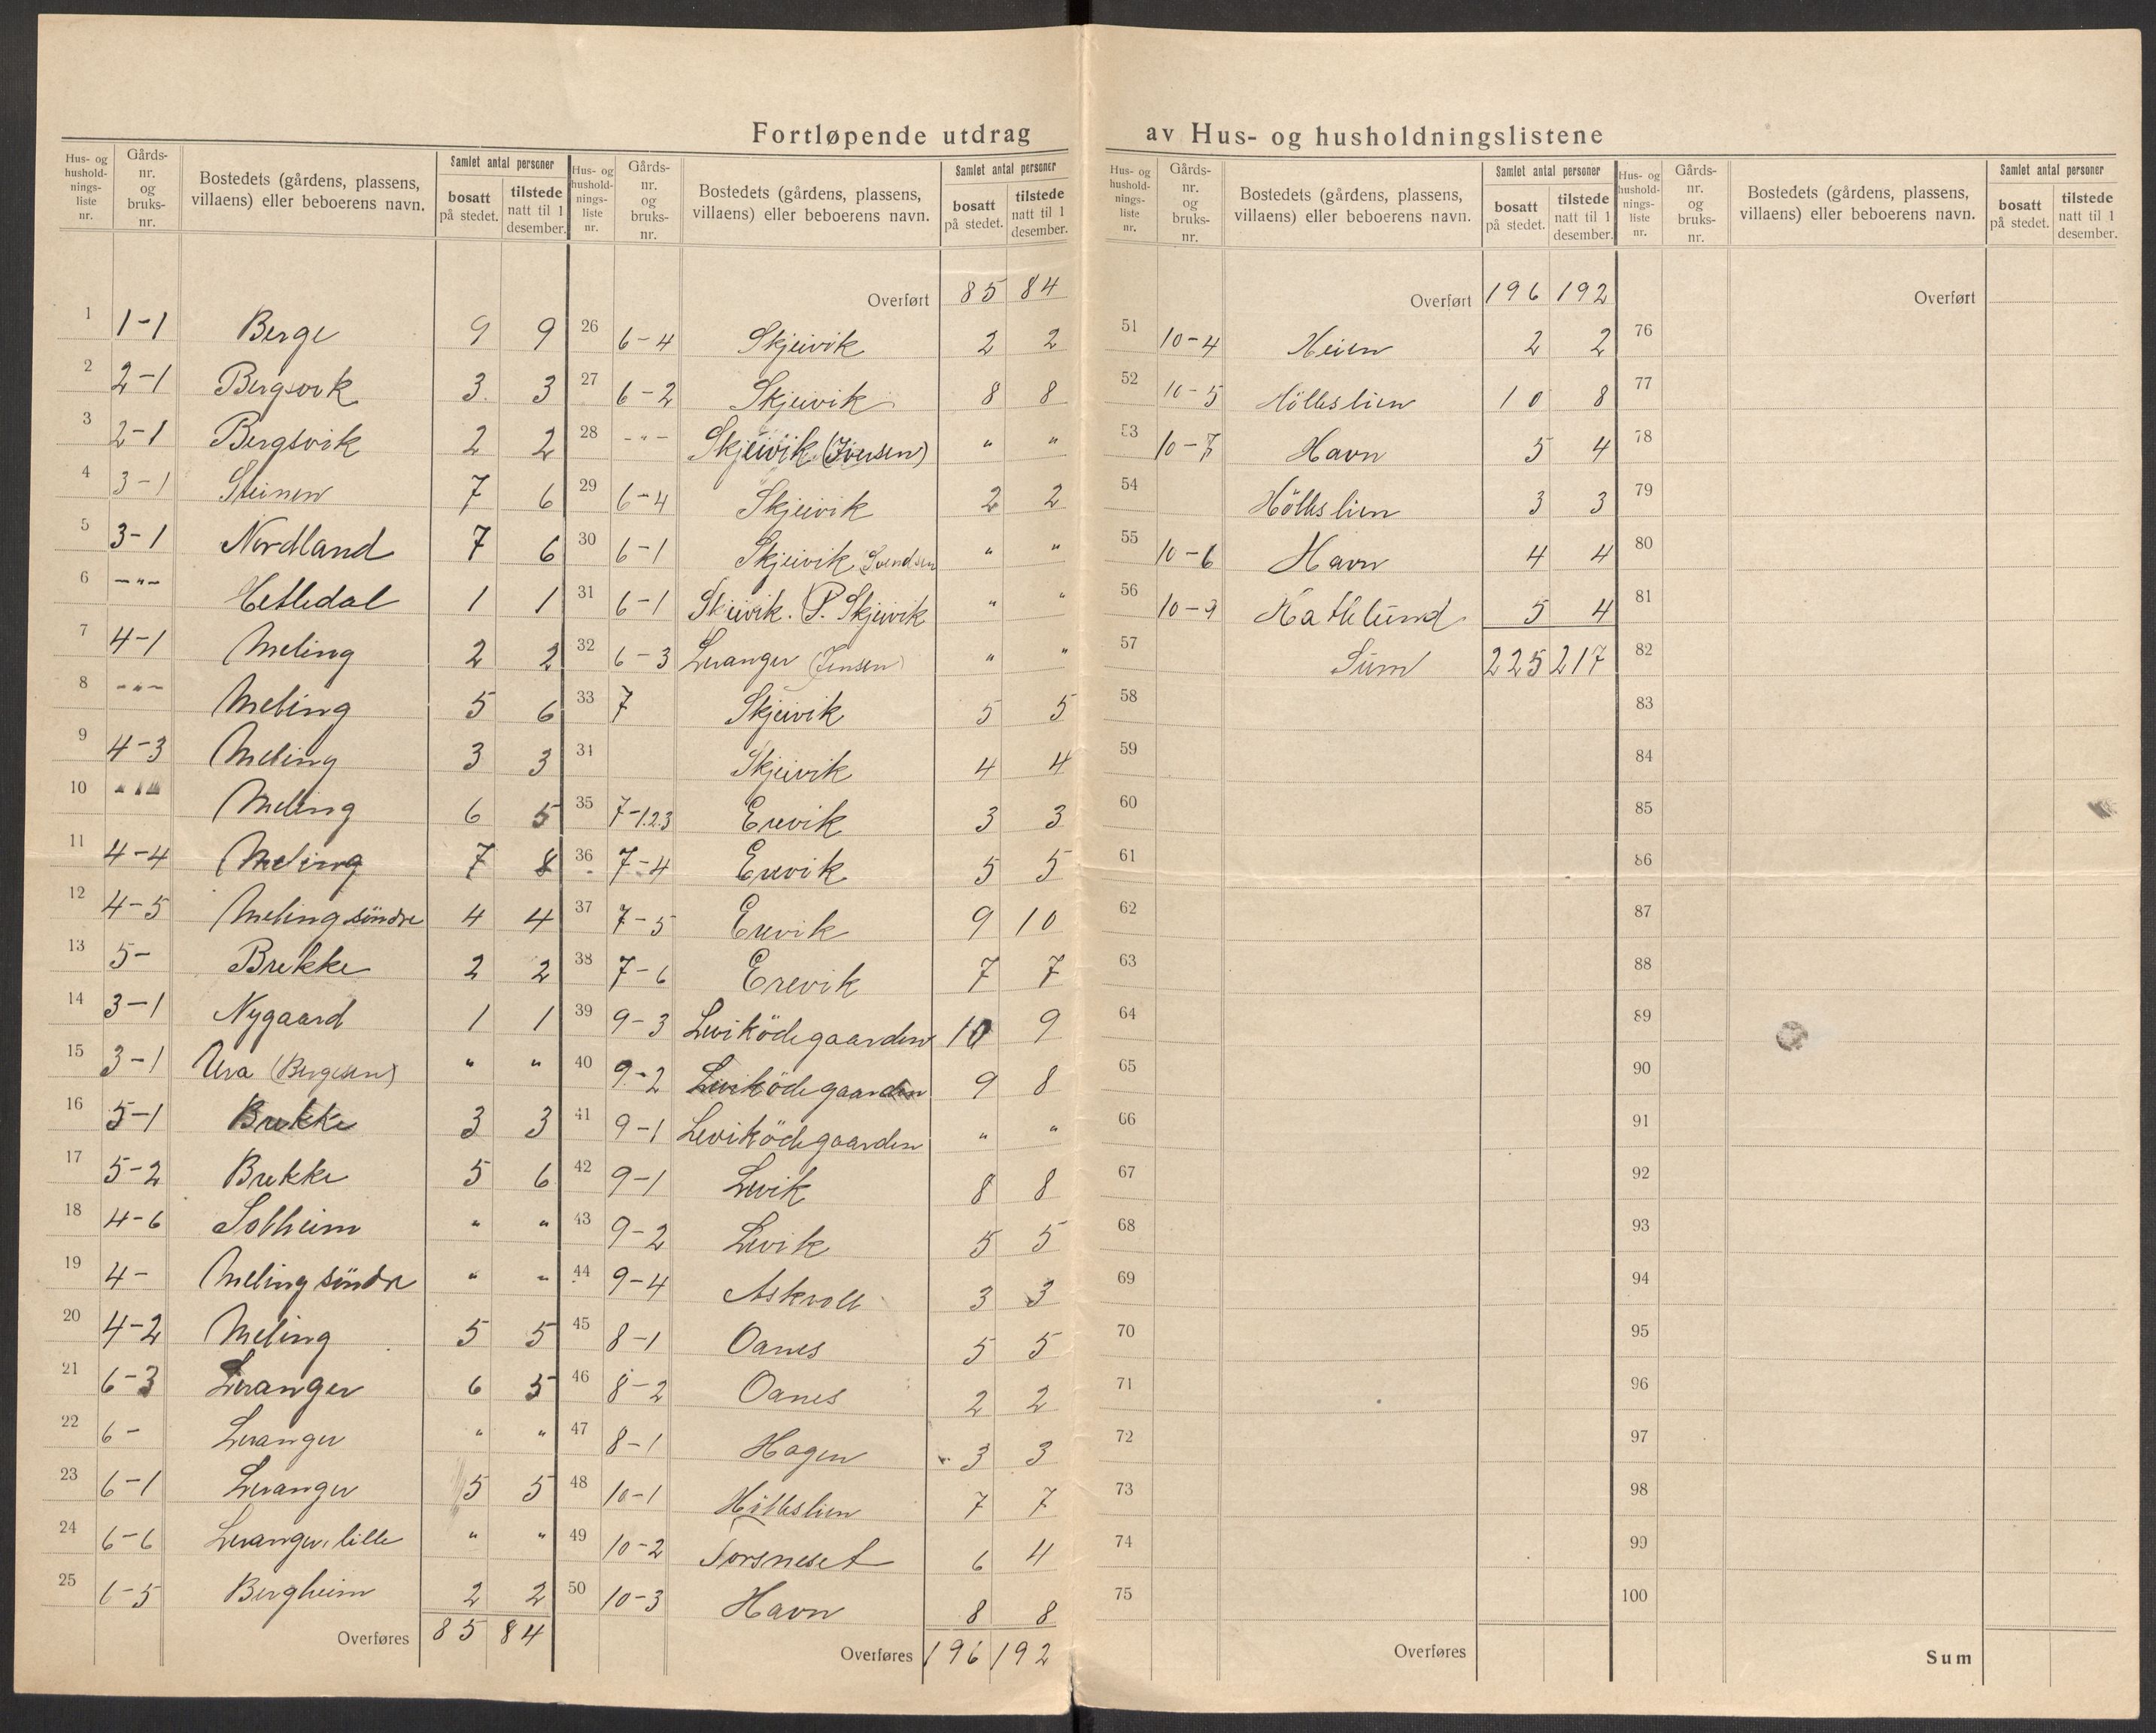 Fortløpende utdrag av Hus- og husholdningslistene
Hus- og husholdnings-liste nr. | Gårds-nr. og bruks-nr. | Bostedets (gårdens, plassens, villaens) eller beboerens navn. | Samlet antal personer bosatt på stedet. | tilstede natt til 1 desember.
1 1-1 Berge 9 9
2 2-1 Bergsvik 3 3
3 2-1 Bergsvik 2 2
4 3-1 Steinen 7 6
5 3-1 Nordland 7 6
6 -"- Hetledal 1 1
7 4-1 Meling 2 2
8 -"- Meling 5 6
9 4-3 Meling 3 3
10 -"- Meling 6 5
11 4-4 Meling 7 8
12 4-5 Meling söndre 4 4
13 5- Brekke 2 2
14 3-1 Nygaard 1 1
15 3-1 Ura (Bergesen) " "
16 5-1 Brekke 3 3
17 5-2 Brekke 5 6
18 4-6 Solheim " "
19 4- Meling söndre " "
20 4-2 Meling 5 5
21 6-3 Levanger 6 5
22 6- Levanger " "
23 6-1 Levanger 5 5
24 6-6 Levanger, lille " "
25 6-5 Bergheim 2 2
Overføres 85 84
Hus- og husholdnings-liste nr. | Gårds-nr. og bruks-nr. | Bostedets (gårdens, plassens, villaens) eller beboerens navn. | Samlet antal personer bosatt på stedet. | tilstede natt til 1 desember.
Overført 85 84
26 6-4 Skjeivik 2 2
27 6-2 Skjeivik 8 8
28 -"- Skjeivik (Iversen) " "
29 6-4 Skjeivik 2 2
30 6-1 Skjeivik Svendsen " "
31 6-1 Skjeivik. P. Skjeivik " "
32 6-3 Levanger (Jensen) " "
33 7 Skjeivik 5 5
34 Skjeivik 4 4
35 7-1.2.3 Erevik 3 3
36 7-4 Erevik 5 5
37 7-5 Erevik 9 10
38 7-6 Erevik 7 7
39 9-3 Leviködegaarden 10 9
40 9-2 Leviködegaarden 9 8
41 9-1 Leviködegaarden " "
42 9-1 Levik 8 8
43 9-2 Levik 5 5
44 9-4 Askvoll 3 3
45 8-1 Oanes 5 5
46 8-2 Oanes 2 2
47 8-1 Hagen 3 3
48 10-1 7 7
49 10-2 Torsneset 6 4
50 10-3 Havn 8 8
Overføres 196 192
Hus- og husholdnings-liste nr. | Gårds-nr. og bruks-nr. | Bostedets (gårdens, plassens, villaens) eller beboerens navn. | Samlet antal personer bosatt på stedet. | tilstede natt til 1 desember.
Overført 196 192
51 10-4 Heien 2 2
52 10-5 Hölleslien 10 8
53 10-7 Havn 5 4
54 Hölleslien 3 3
55 10-6 Havn 4 4
56 10-9 5 4
57 Sum 225 217
58
59
60
61
62
63
64
65
66
67
68
69
70
71
72
73
74
75
Overføres
Hus- og husholdnings-liste nr. | Gårds-nr. og bruks-nr. | Bostedets (gårdens, plassens, villaens) eller beboerens navn. | Samlet antal personer bosatt på stedet. | tilstede natt til 1 desember.
Overført
76
77
78
79
80
81
82
83
84
85
86
87
88
89
90
91
92
93
94
95
96
97
98
99
100
Sum